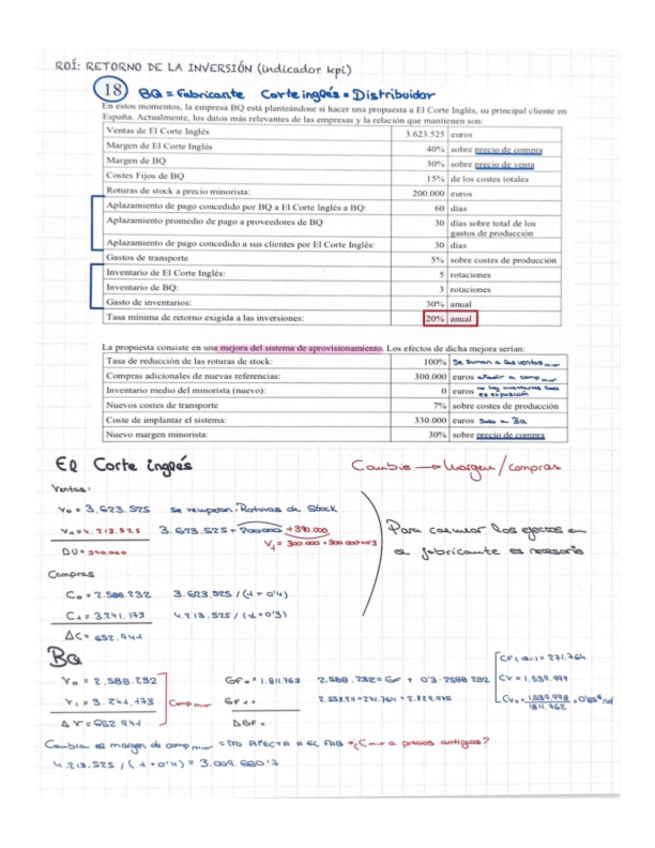 ROÍ: RETORNO DE LA INVERSIÓN (indicador kpi)
18 BQ = Fabricante Corte inglés = Distribuidor
En estos momentos, la empresa BQ está planteándose si hacer una propuesta a El Corte Inglés, su principal cliente en
España. Actualmente, los datos más relevantes de las empresas y la relación que mantienen son:
Ventas de El Corte Inglés 3.623.525 euros
Margen de El Corte Inglés 40% sobre precio de compra
Margen de BQ 30% sobre precio de venta
Costes Fijos de BQ 15% de los costes totales
Roturas de stock a precio minorista: 200.000 euros
Aplazamiento de pago concedido por BQ a El Corte Inglés a BQ: 60 días
Aplazamiento promedio de pago a proveedores de BQ 30 días sobre total de los
gastos de producción
Aplazamiento de pago concedido a sus clientes por El Corte Inglés: 30 días
Gastos de transporte 5% sobre costes de producción
Inventario de El Corte Inglés: 5 rotaciones
Inventario de BQ: 3 rotaciones
Gasto de inventarios: 30% anual
Tasa mínima de retorno exigida a las inversiones: 20% anual
La propuesta consiste en una mejora del sistema de aprovisionamiento. Los efectos de dicha mejora serían:
Tasa de reducción de las roturas de stock: 100% Se suman a las ventas min
Compras adicionales de nuevas referencias: 300.000 euros añadir a comp min
Inventario medio del minorista (nuevo): 0 euros no hay inventarios todo
es exposición
Nuevos costes de transporte 7% sobre costes de producción
Coste de implantar el sistema: 330.000 euros
Nuevo margen minorista: 30% sobre precio de compra
El Corte inglés Cambia → Margen / compras
Ventas:
V₀ = 3.623.525 se recuperan: Roturas de Stock
V₁ = 4.213.525 3.623.525 + 200000 + 390.000
ΔV = 590.000 V₁ = 300.000 + 300.000 × 0'3
Para calcular los efectos en
el fabricante es necesario
Compras
C₀ = 2.588.232 3.623.525 / (1 + 0'4)
C₁ = 3.241.173 4.213.525 / (1 + 0'3)
ΔC = 652.941
BQ
V₀ = 2.588.232 GF₀ = 1.811.763 2.588.232 = GF + 0'3 · 2588 232
CF (0,15) = 271.764
CV = 1.539.999
V₁ = 3.241.173 Comp min GF₁ =
ΔV = 652 941 ΔGF =
Cambia el margen de comp min = NO AFECTA A EL FAB → ¿C min a precios antiguos?
4.213.525 / (1 + 0'4) = 3.009.660'7